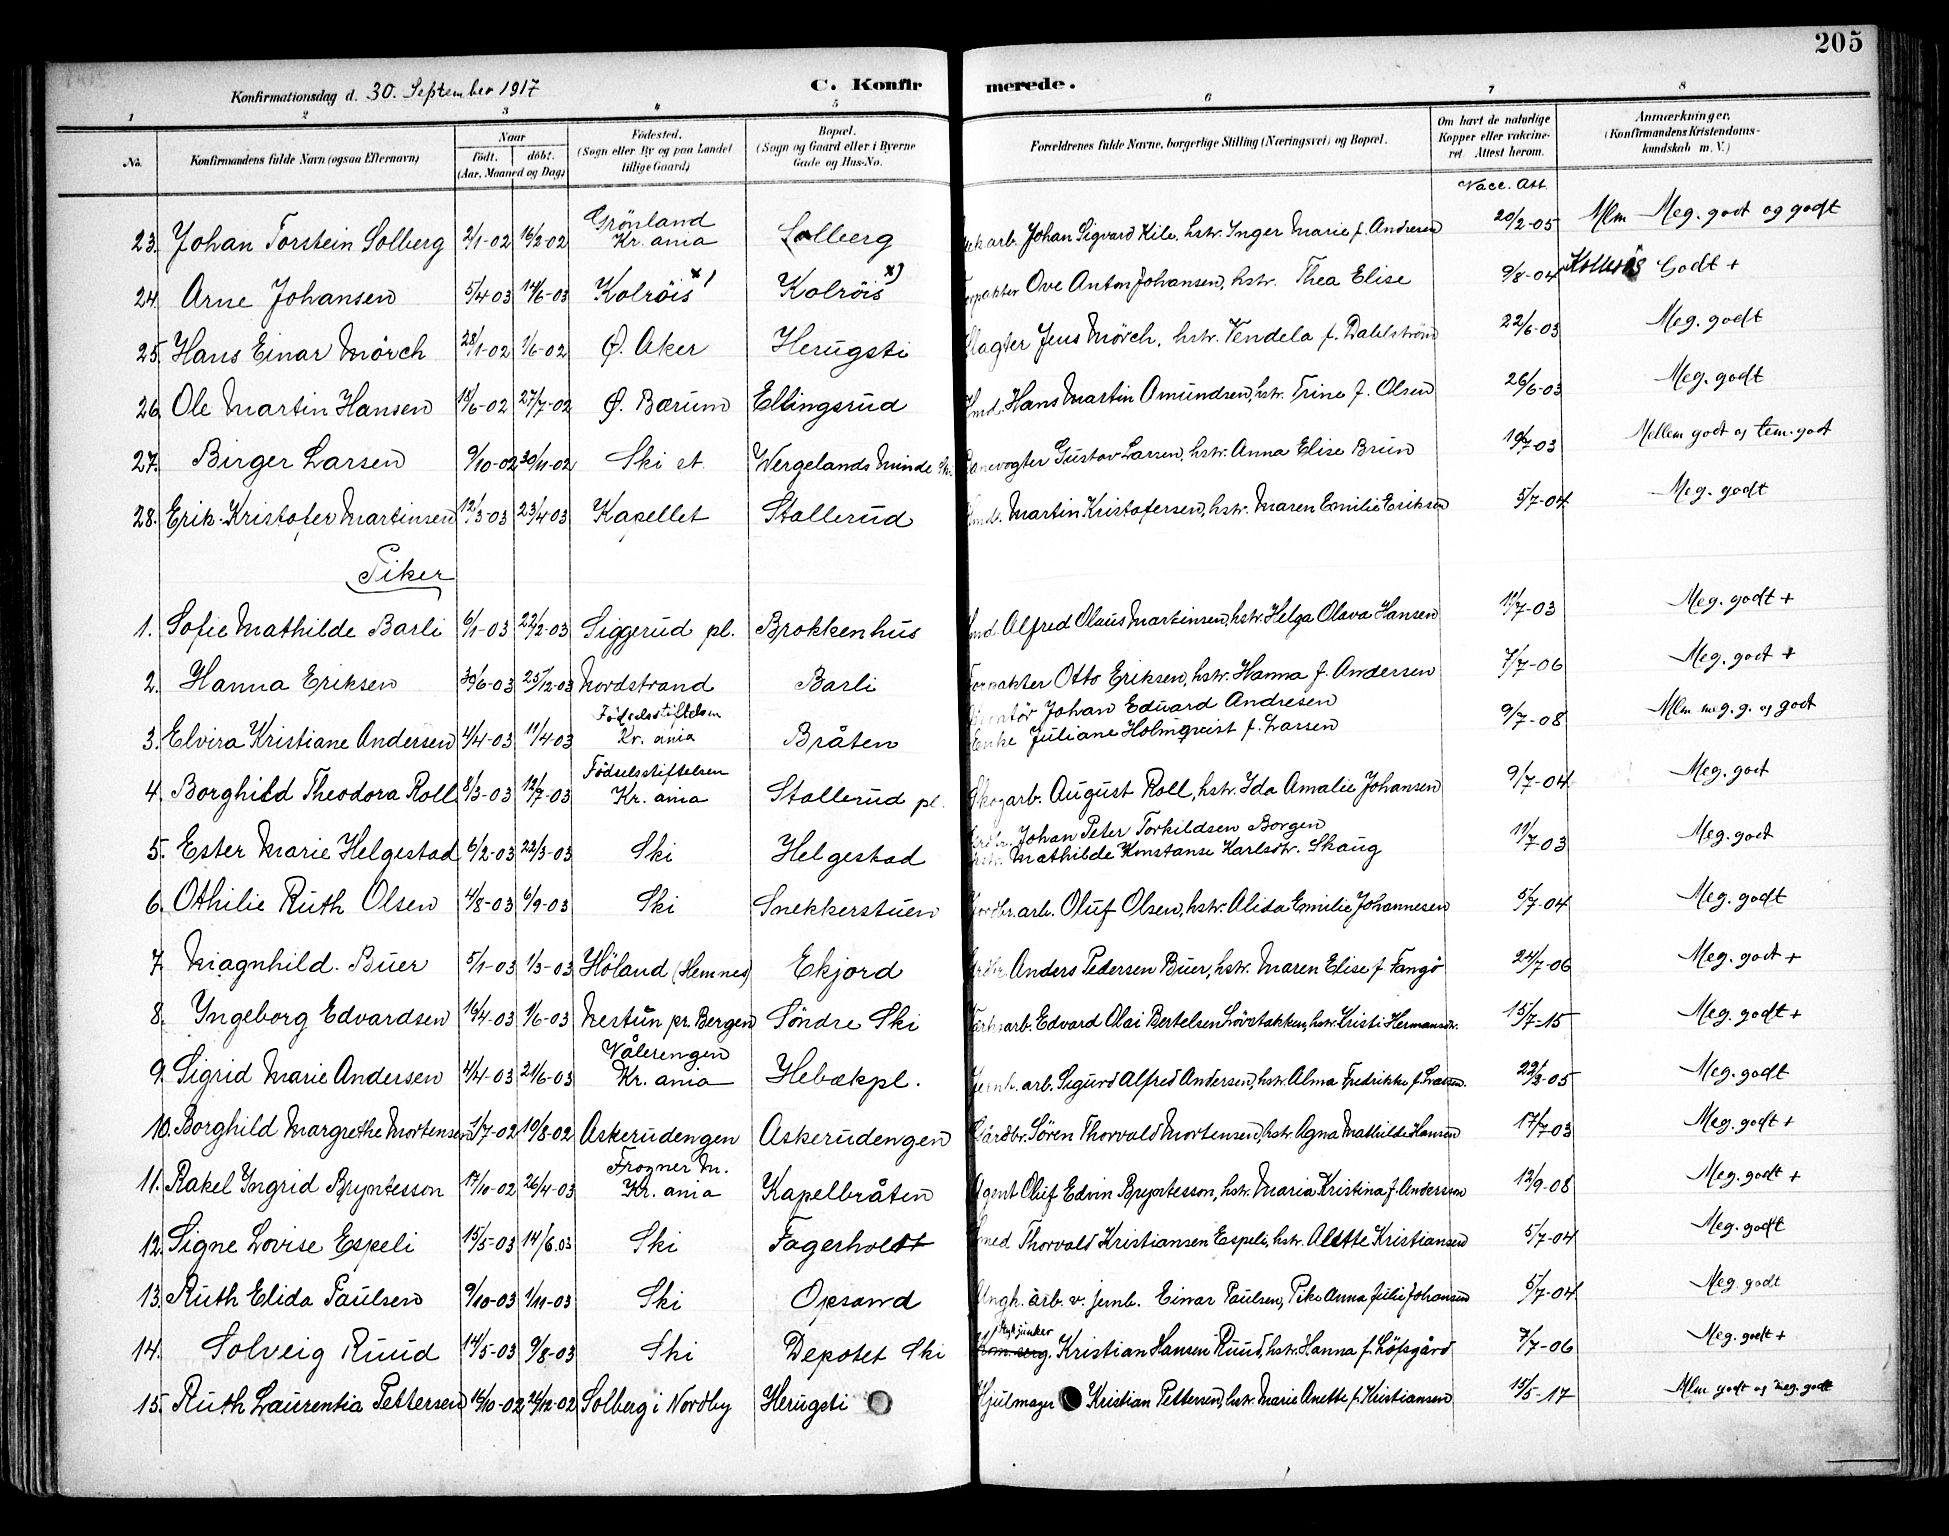 205
Konfirmationsdag d. 30. September 1917 C. Konfirmerede.
1 2 3 4 5 6 7 8
No. Konfirmandens fulde Navn (ogsaa Efternavn) Naar født. døbt. (Aar, Maaned og Dag) Fødested. (Sogn eller By og paa Landet tillige Gaard) Bopæl. (Sogn og Gaard eller i Byerne Gade og Hus-No. Forældrenes fulde Navne, borgerlige Stilling (Næringsvei) og Bopæl. Om havt de naturlige Kopper eller vakcineret. Attest herom. Anmærkninger. (Konfirmandens Kristendomskundskab m. V.)
Vacc. Att.
23. Johan Torstein Solberg 2/1-02 16/2-02 Grönland Kr. ania Solberg arb. Johan Sigvard Kile, hstr. Inger Marie f. Andresen 20/2-05 Mlm Meg. godt og godt
24. Arne Johansen 5/4 03 14/6-03 Kolröis x) Kolröis x) Ove Anton Johansen, hstr. Thea Elise 9/8-04 Godt +
25. Hans Einar Mörch 28/1-02 1/6-02 Ø. Aker Herugsti Slagter Jens Mörch, hstr. Vendela f. Dahlström 22/6-03 Meg. godt
26. Ole Martin Hansen 18/6-02 27/7-02 Ø. Bærum Ellingsrud Smd. Hans Martin Amundsen, hstr. Trine f. Olsen 26/6-03 Meg. godt
27. Birger Larsen 9/10-02 30/11-02 Ski st. Wergelands Minde Banevogter Gustav Larsen, hstr. Anna Elise Brun 19/7-03 Mellem godt og tem. godt
28. Erik Kristofer Martinsen 12/3-03 23/4-03 Kapellet Stallerud Smd. Martin Kristofersen, hstr. Maren Emilie Eriksen 5/7-04 Meg. godt
Piker
1. Sofie Mathilde Barli 6/1-03 22/2-03 Siggerud pl. Brokkenhus Smd. Alfred Olaus Martinsen, hstr. Helga Olava Hansen 11/7-03 Meg. godt +
2. Hanna Eriksen 30/6-03 25/12-03 Nordstrand Barli Forpakter Otto Eriksen, hstr. Hanna f. Andersen 7/7-06 Meg. godt +
3. Elvira Kristiane Andersen 4/4-03 11/4-03 Födselsstiftelsen Kr. ania Bråten Johan Edvard Andresen Enke Juliane Holmqvist f. Larsen 9/7-08 Mlm meg. g. og godt
4. Borghild Theodora Roll 8/3-03 12/7-03 Födselsstiftelsen Kr. ania Stallerud pl. Skogarb. August Roll, hstr. Ida Amalie Johansen 9/7-04 Meg. godt
5. Ester Marie Helgestad 6/2-03 22/3-03 Ski Helgestad Grdbr. Johan Peter Torkildsen Borgen hstr. Mathilde Konstanse Karlsdtr. Skaug 11/7-03 Meg. godt
6. Othilie Ruth Olsen 4/8-03 6/9-03 Ski Snekkerstuen Jordbr. arb. Oluf Olsen, hstr. Alida Emilie Johannesen 5/7-04 Meg. godt
7. Magnhild Buer 5/1-03 1/3-03 Höland (Hemnes) Ekjord Grdbr. Anders Pedersen Buer, hstr. Maren Elise f. Tangö 24/7-06 Meg. godt +
8. Yngeborg Edvardsen 16/4-03 1/6-03 Nestun pr. Bergen Söndre Ski arb. Edvard Olai Bertelsen Lövstakken, hstr. Kristi Hermansdr. 15/7-15 Meg. godt +
9. Sigrid Marie Andersen 4/4-03 21/6-03 Vålerengen Kr. ania Hebækpl. Jernb. arb. Sigurd Alfred Andersen, hstr. Alma Fredrikke f. Larsen. 23/3-05 Meg. godt
10. Borghild Margrethe Mortensen 1/7-02 10/8-02 Askerudengen Askerudengen Gårdbr. Sören Thorvald Mortensen, hstr. Agna Mathilde Hansen 17/7-03 Meg. godt +
11. Rakel Yngrid Bryntesson 17/10-02 26/4-03 Frogner M. Kr. ania Kapelbråten Agent Oluf Edvin Bryntesson, hstr. Maria Kristina f. Andersson 12/9-08 Meg. godt +
12. Signe Lovise Espeli 15/5-03 14/6.03 Ski Fagerholdt Smed Thorvald Kristiansen Espeli, hstr. Alette Kristiansen 5/7-04 Meg. godt
13. Ruth Elida Paulsen 9/10-03 1/11-03 Ski Opsand Ungk. arb. v. jernb. Einar Paulsen, Pike Anna Julie Johansen 5/7-04 Meg. godt
14. Solveig Ruud 14/5-03 9/8-03 Ski Depotet Ski Stykjunker Kristian Hansen Ruud, hstr. Hanna f. Löfsgård 7/7-06 Meg. godt +
15. Ruth Laurentia Pettersen 16/10-02 26/12-02 Solberg i Nordby Herugsti Hjulmager Kristian Pettersen, hstr. Marie Anette f. Kristiansen 15/5-17 Mlm godt og meg. godt